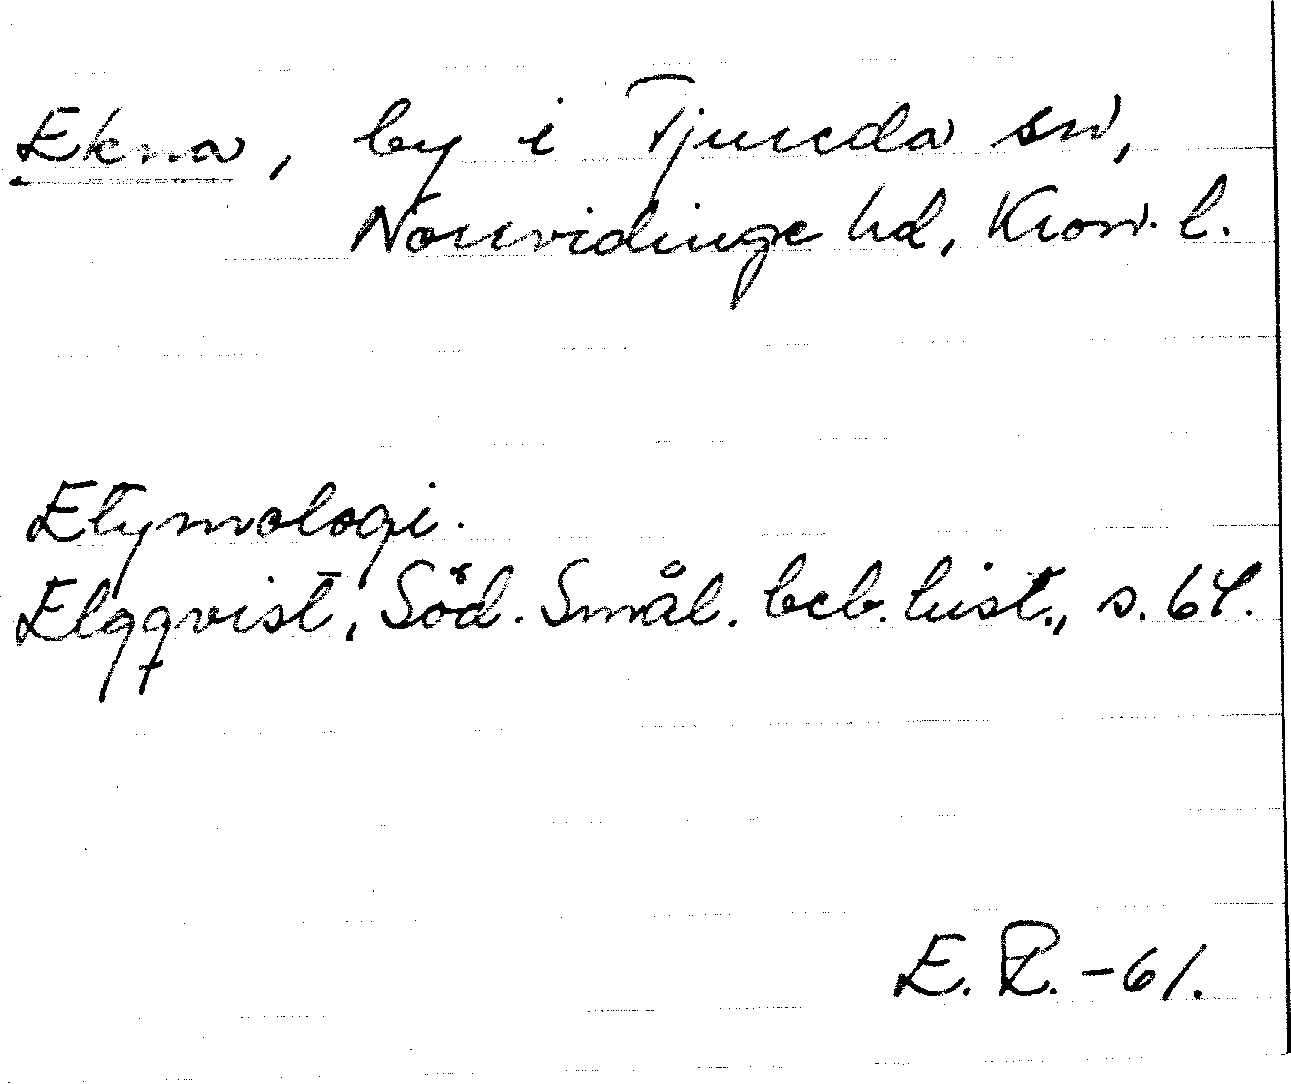 Ekna, by i Tjureda sn,
Norrvidinge hd, Kron. l.
Etymologi.
Elgqvist, Söd. Smål. beb. hist., s. 64.
E. P. -61.